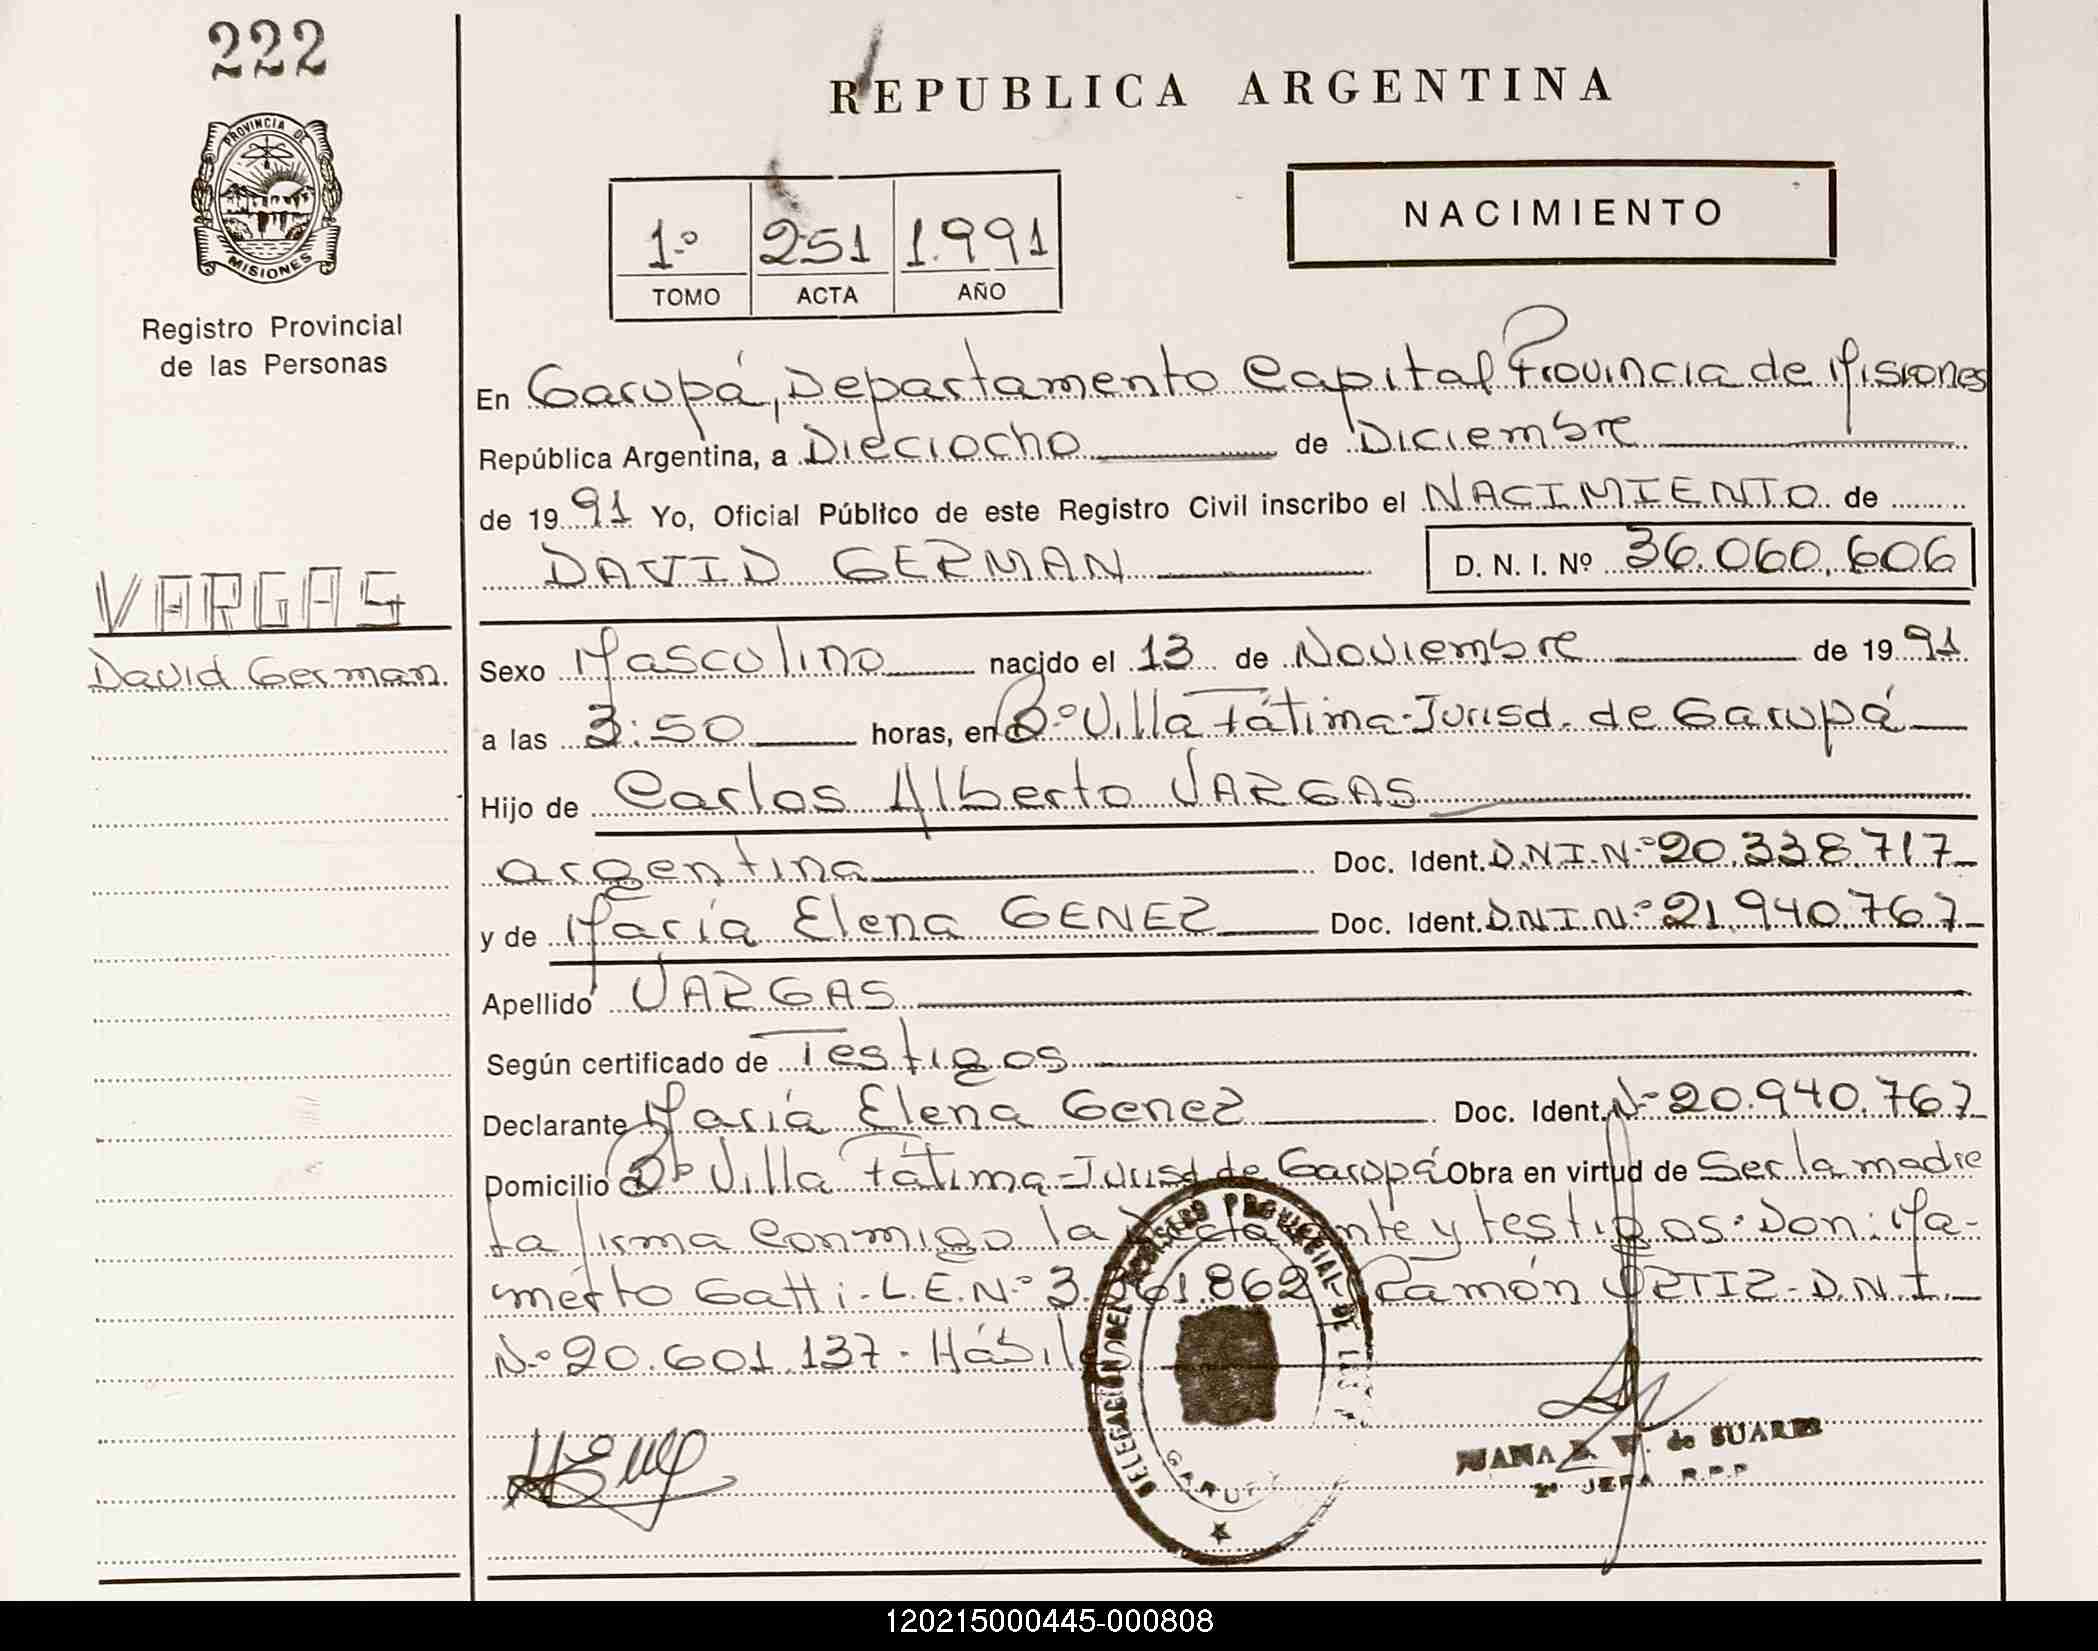 222
PROVINCIA DE
MISIONES
Registro Provincial
de las Personas
VARGAS
David German
REPUBLICA ARGENTINA
1º 251 1.991
TOMO ACTA AÑO
NACIMIENTO
En Garupá, Departamento Capital Provincia de Misiones
República Argentina, a Dieciocho de Diciembre
de 1991 Yo, Oficial Público de este Registro Civil inscribo el NACIMIENTO de
DAVID GERMAN D. N. I. Nº 36.060.606
Sexo Masculino nacido el 13 de Noviembre de 1991
a las 3:50 horas, en Bº Villa Fátima-Jurisd. de Garupá
Hijo de Carlos Alberto VARGAS
argentina Doc. Ident. D.N.I.Nº 20.338.717
y de María Elena GENEZ Doc. Ident. DNI.Nº 21.940.767
Apellido VARGAS
Según certificado de Testigos
Declarante María Elena Genez Doc. Ident. Nº 20.940.767
Domicilio Bº Villa Fátima-Jurisd de Garupá Obra en virtud de Ser la madre
La firma conmigo la Declarante y testigos: Don: Ma-
merto Gatti-L.E.Nº 3. 61.862 Ramón ORTIZ-D.N.I.
Nº 20.601.137. Hábil
DELEGACION DEL REGISTRO PROVINCIAL DE LAS
GARUP
JUANA E. W. de SUAREZ
2º JEFA R.P.P
120215000445-000808